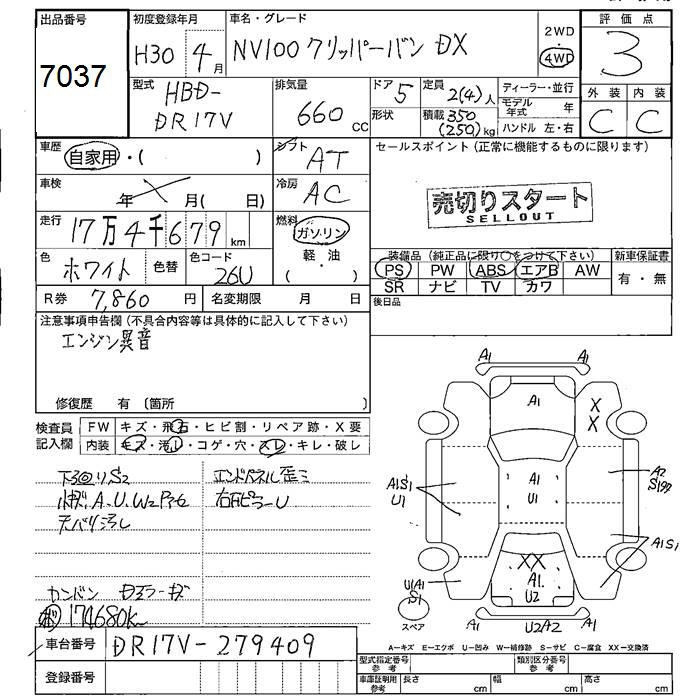 出品番号
7037
初度登録年月
H30 4月
車名・グレード
NV100クリッパーバン DX
2WD
・
4WD
評価点
3
型式
HBD-
DR17V
排気量
660 cc
ドア 5
形状
定員
2(4)人
積載 350
(250)kg
ディーラー・並行
モデル年式 年
ハンドル 左・右
外装 内装
C C
車歴
自家用・( )
シフト
AT
セールスポイント (正常に機能するものに限ります)
売切りスタート
SELLOUT
車検
年 月( 日)
冷房
AC
走行
17万4千679 km
燃料
ガソリン
軽・油
( ・ )
色
ホワイト
色替
色コード
26U
装備品 (純正品に限り○をつけて下さい)
PS PW ABS エアB AW
SR ナビ TV カワ
新車保証書
有・無
R券 7,860 円
名変期限 月 日
後日品
注意事項申告欄 (不具合内容等は具体的に記入して下さい)
エンジン異音
修復歴 有 〔箇所 〕
検査員
記入欄
FW キズ・飛石・ヒビ割・リペア跡・X要
内装 キズ・汚レ・コゲ・穴・スレ・キレ・破レ
エンドパネル歪ミ
A.U.W2
カンバン
174680km
車台番号 DR17V-279409
登録番号
A1 A1
A1
X
X
A1S1
U1
A1
U1
A2
A1S1
XX
A1.
U2
U1A1
S1
スペア
A1 U2A2 A1
A-キズ E-エクボ U-凹み W-補修跡 S-サビ C-腐食 XX-交換済
型式指定番号
参考
類別区分番号
参考
車庫証明用
参考
長さ cm 幅 cm 高さ cm